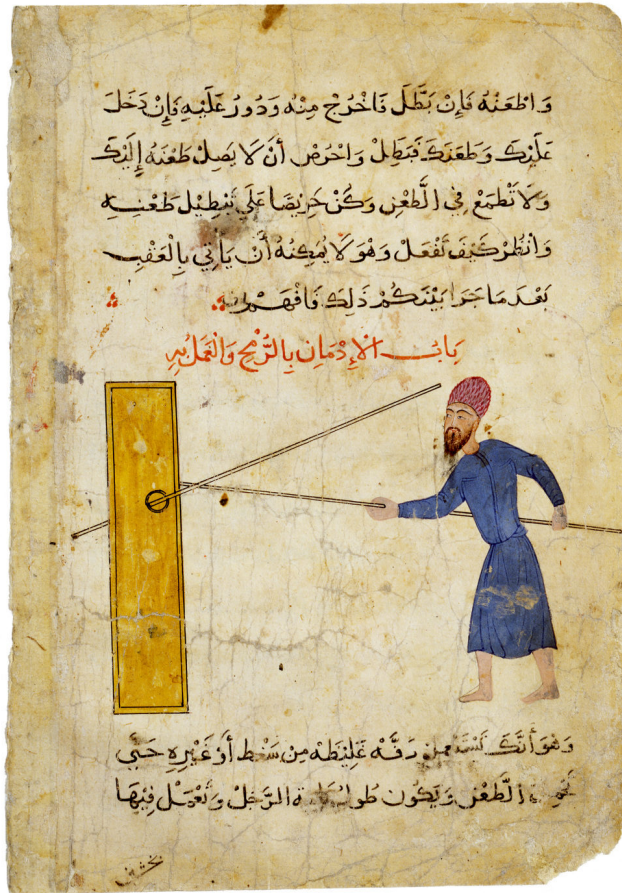 وَاطْعَنْهُ فَإِنْ بَطَّلَ فَاخْرُجْ مِنْهُ وَدُورُ عَلَيْهِ فَإِنْ دَخَلَ
عَلَيْكَ وَطَعَنَكَ فَبَطِّلْ وَاحْرُصْ أَنْ لَا يَصِلْ طَعْنَهُ إِلَيْكَ
وَلَا تَطْمَعْ فِي الْطَّعْنِ وَكُنْ حَرِيْصًا عَلَي تَبْطِيْل طَعْنِهِ
وَانْظُرْ كَيْفَ تَفْعَلْ وَهُوَ لَا يُمَكِنُهُ أَنْ يَأْتِي بِالْعَقْبِ
بَعْدَ مَا جَرَا بَيْنَكُمْ ذَلِكَ فَافْهَمْ
بَابُ الْإِدْمَانِ بِالرُّمْحِ وَالْعَمَلُ بِهِ
وَهُوَ أَنَّكَ دَفَّهْ غَلِيْظَهْ مِنْ سَنْطِ أَوْ غَيْرِهِ حَتَّي
الْطَّعْنَ وَيَكُونُ الرَّجُلْ وَتَعْمَلْ فِيْهَا